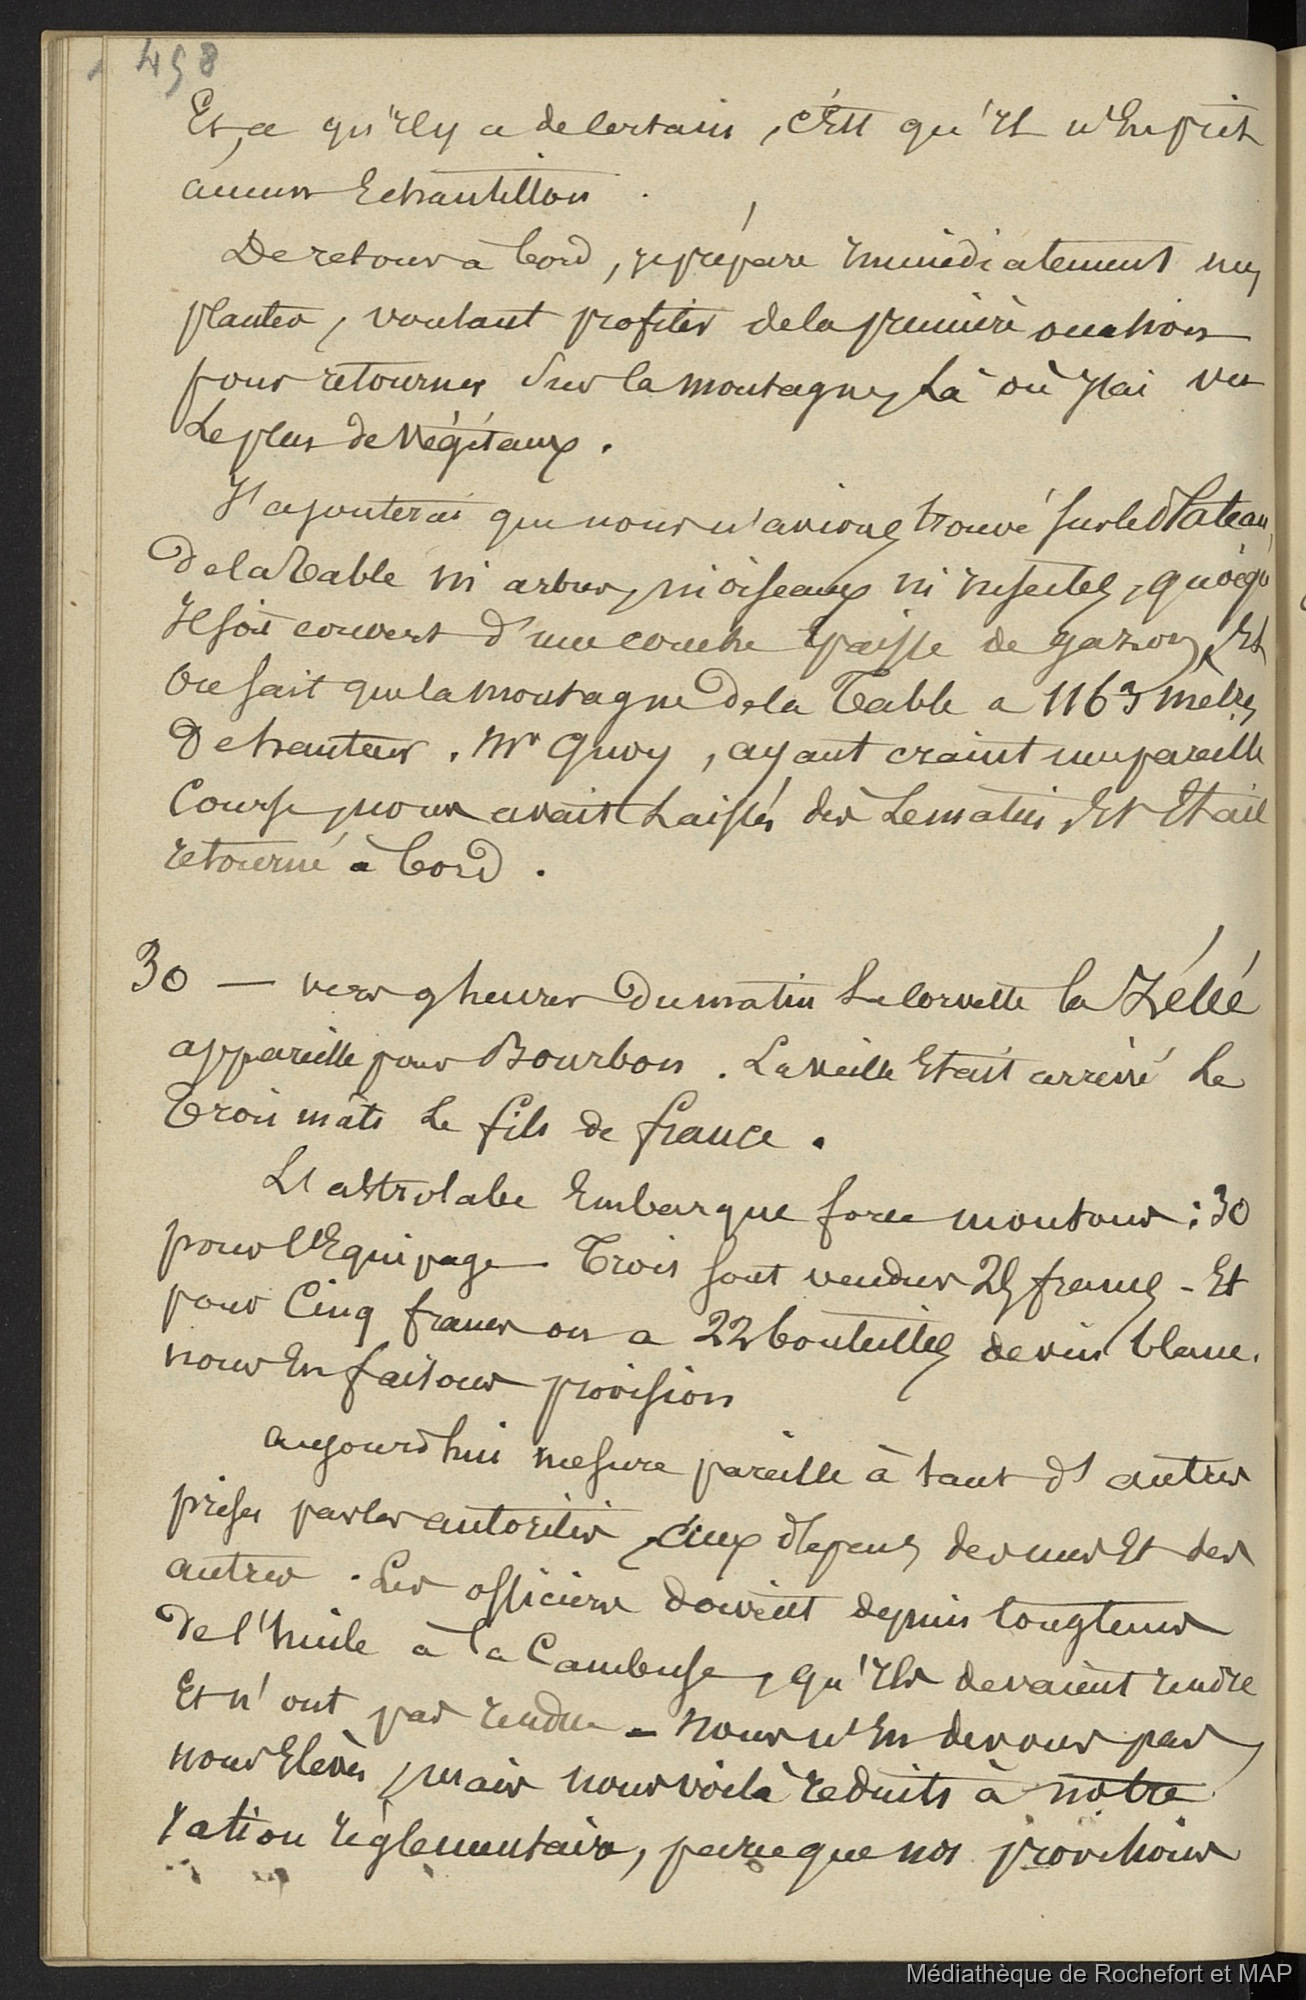 458
Et, ce qu'il y a de certain, c'est qu'il n'en prit
aucun Echantillon.
De retour à bord, je prépare immédiatement mes
plantes, voulant profiter de la première occasion
pour retourner sur la montagne, là où j'ai vu
le plus de végétaux.
J'ajouterai que nous n'avions trouvé sur le Plateau
de la Table ni arbres, ni oiseaux ni insectes, quoiqu'
il soit couvert d'une couche épaisse de gazon, Et
on sait que la montagne de la Table a 1163 mètres
De hauteur. Mr Quoy, ayant craint une pareille
Course, nous avait laissés dès le matin, Et Etait
retourné à bord.
30 — vers 9 heures du matin la corvette la Zélée
appareille pour Bourbon. La veille Etait arrivé le
Trois mâts le fils de france.
L'astrolabe Embarque force moutons : 30
pour l'Equipage. Trois sont vendus 25 francs - Et
pour Cinq francs on a 22 bouteilles de vin blanc.
nous En faisons provision
aujourd'hui mesure pareille à tant d'autres
prises par les autorités, aux dépens des uns Et des
autres. Les officiers doivent depuis longtems
de l'huile à la Cambuse, qu'ils devaient rendre
Et n'ont pas rendue - nous n'En devons pas,
nous Elèves, mais nous voilà réduits à notre
ration règlementaire, parce que nos provisions
Médiathèque de Rochefort et MAP